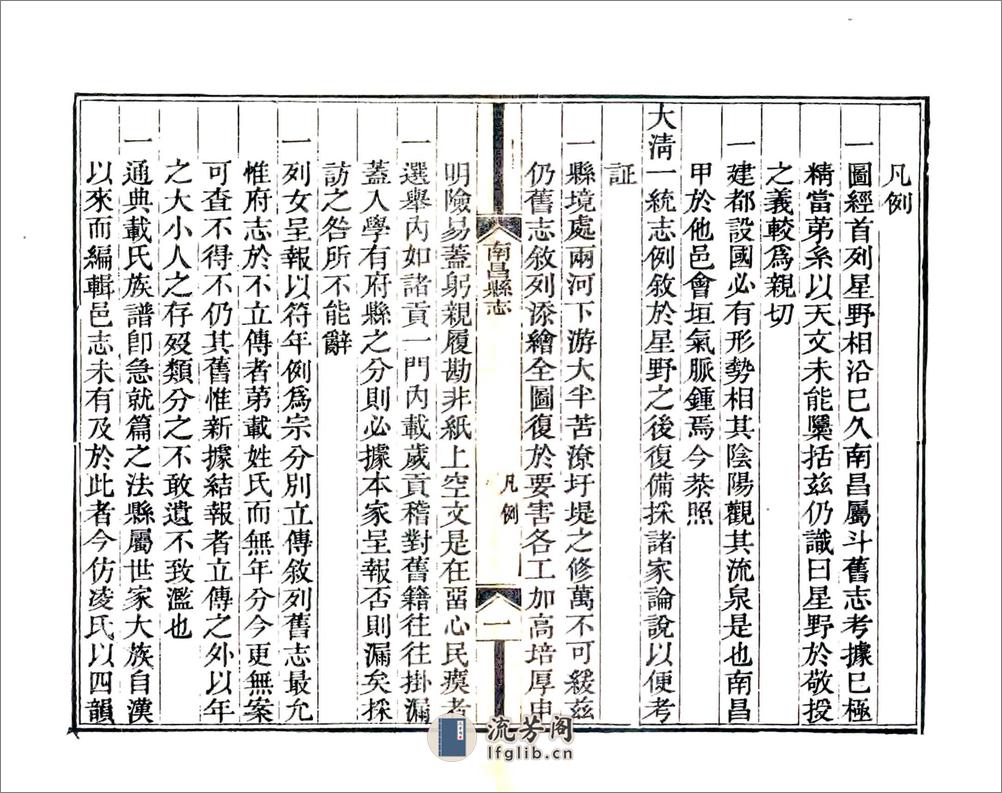 凡例
一圖經首列星野相沿已久南昌屬斗舊志考據已極
精當第系以天文未能檃括兹仍識曰星野於敬授
之義較爲親切
一建都設國必有形勢相其陰陽觀其流泉是也南昌
甲於他邑會垣氣脈鍾焉今恭照
大淸一統志例敘於星野之後復備採諸家論說以便考
証
一縣境處兩河下游大半苦潦圩堤之修萬不可緩兹
仍舊志敘列添繪全圖復於要害各工加高培厚申
南昌縣志
凡例
一
明險易蓋躬親履勘非紙上空文是在畱心民瘼者
一選舉內如諸貢一門內載歲貢稽對舊籍往往掛漏
蓋入學有府縣之分則必據本家呈報否則漏矣採
訪之咎所不能辭
一列女呈報以符年例爲宗分別立傳敘列舊志最允
惟府志於不立傳者第載姓氏而無年分今更無案
可查不得不仍其舊惟新據結報者立傳之外以年
之大小人之存歿類分之不敢遺不致濫也
一通典載氏族譜卽急就篇之法縣屬世家大族自漢
以來而編輯邑志未有及於此者今仿凌氏以四韻
流芳阁
lfglib.cn